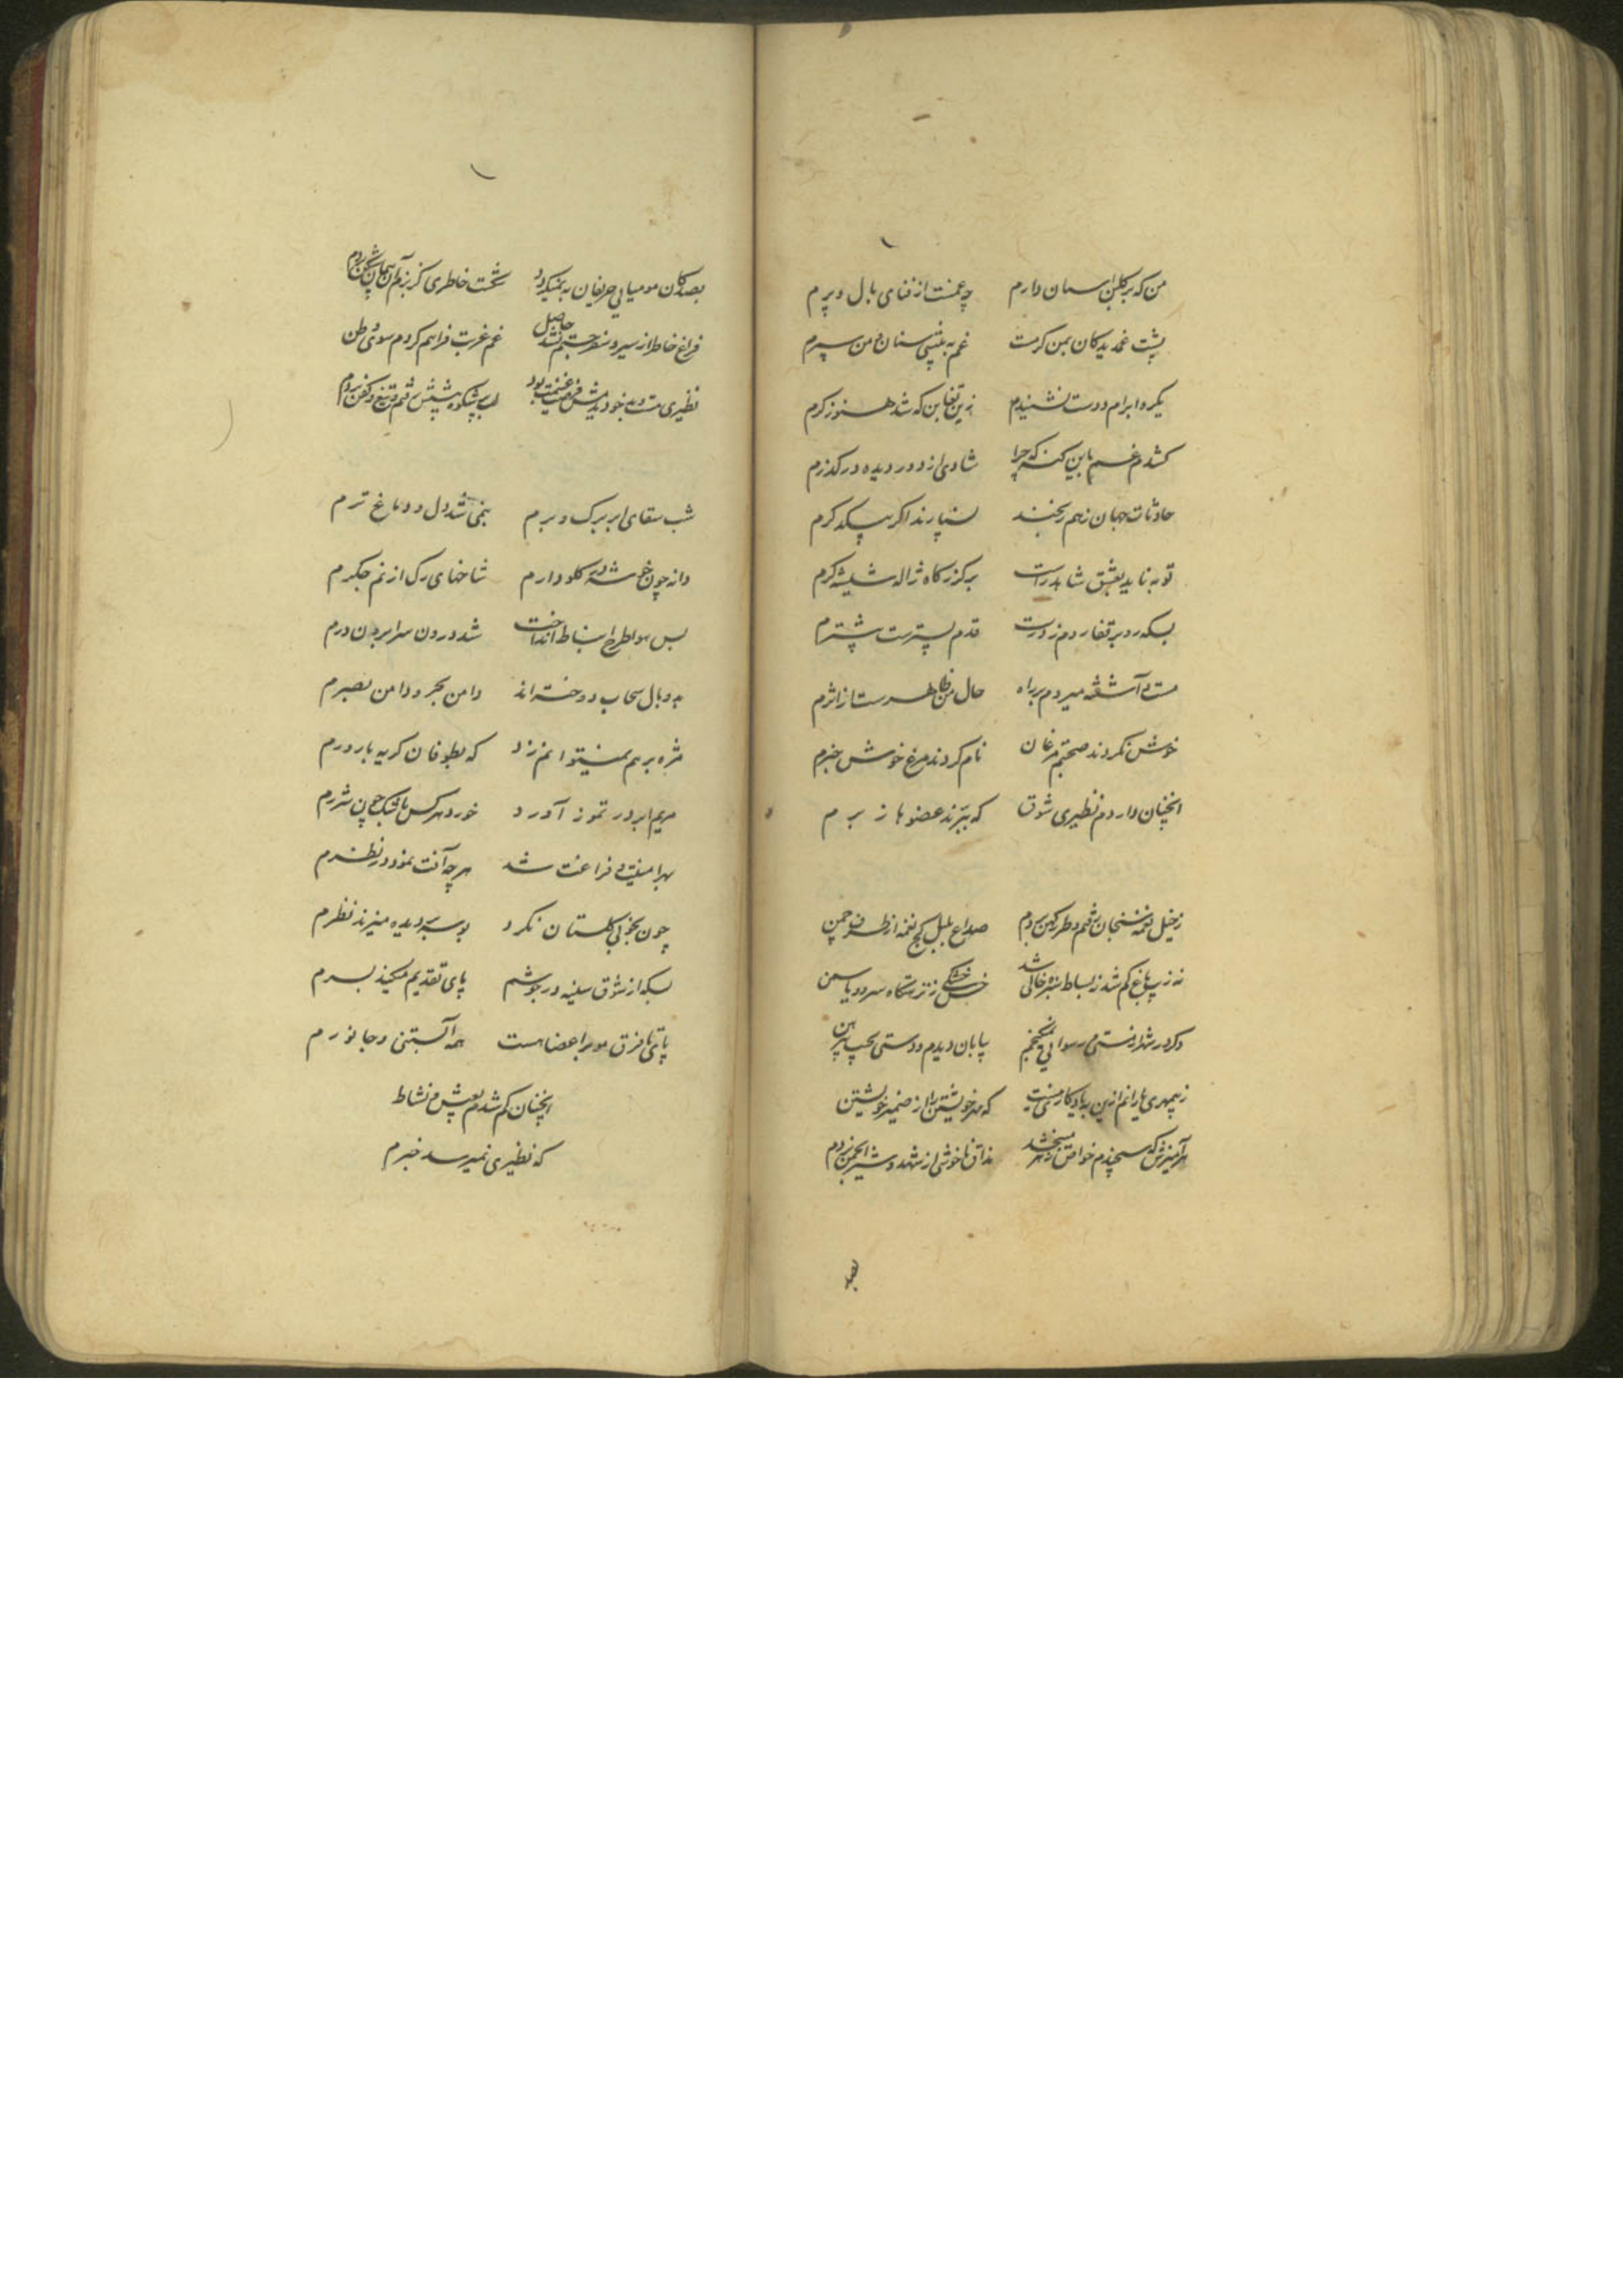 من که بر گلبن اسان دارم چه غمست از فنای بال و پرم
پشت غمدیدگان بمن گرمست غم به نیستان من سپرم
یکره ابرام دوست نشنیدم زین تغابن که شد هنوز کرم
کشدم غم باین گنه که چرا شادی از دور دیده در گذرم
حادثات جهان زهم ریخند نسپارند اگر بیکدگرم
توبه ناید بعشق شاهد راست برگذرگاه ژاله شیشه گرم
بسکه رو بر قفا روم ز درت قدم پسترست پیشترم
مست و آشفته میروم بر راه حال من ظاهرست از اثرم
خوش نکردند صحبتم مرغان نام کردند مرغ خوش خبرم
انچنان داردم نظیری شوق که ببرند عضوها ز برم
ز خیل نغمه سنجان رفتم و طرز کهن بردم صداع بلبل کج نغمه از طرف چمن
نه زیب باغ کم شد نه بساط سبزه خالی شد خس خشکی ز نزهتگاه سرو و یاسمن
وگر در شهر از مستی و رسوایی نمیگنجم بیابان دیدم و دستی بجیب پیرهن
ز بیمهری یارانم ازین به یادگاری نیست که مهر خویشتن را از ضمیر خویشتن
بهر آمیزش که سنجیدم خواص زهر میبخشد مذاق ناخوشی از شهد و شیر انجمن بردم
بصد
بصد کان مومیایی حریفان به نمیگردد شکست خاطری کز بزم آن پیمان شکن بردم
فراغ خاطر از سیر و سفر جستم نشد حاصل غم غربت فراهم کردم سوی وطن
نظیری دست و تیغ خود بدیدش فرصت غنیمت بود لب پر شکوه پیشش رفتم و تیغ و کفن بردم
شب سقای ابر برگ و برم بنمی شد دل و دماغ ترم
دانه چون خوشه در گلو دارم شاخهای رگ از نم جگرم
بس هوا طرح انبساط انداخت شد درون سرا برون درم
به وبال سحاب دوخته‌اند دامن بحر و دامن بصرم
مژه بر هم نمیتوانم زد که بطوفان گریه بارورم
مریم ابر در تموز آورد خورد هر کس بافتک چون شررم
بهر امنیت و فراغت شد هر چه آفت نمود در نظرم
چون بخوبی گلستان نگرد بوسه بر دیده میزند نظرم
بسکه از شوق سینه در جوشم پای تقدیم میکند بسرم
پای تا فرق مو بر اعضا هست همه آبستنی و جانورم
انچنان گم شدم بعیش و نشاط
که نظیری نمیرسد خبرم